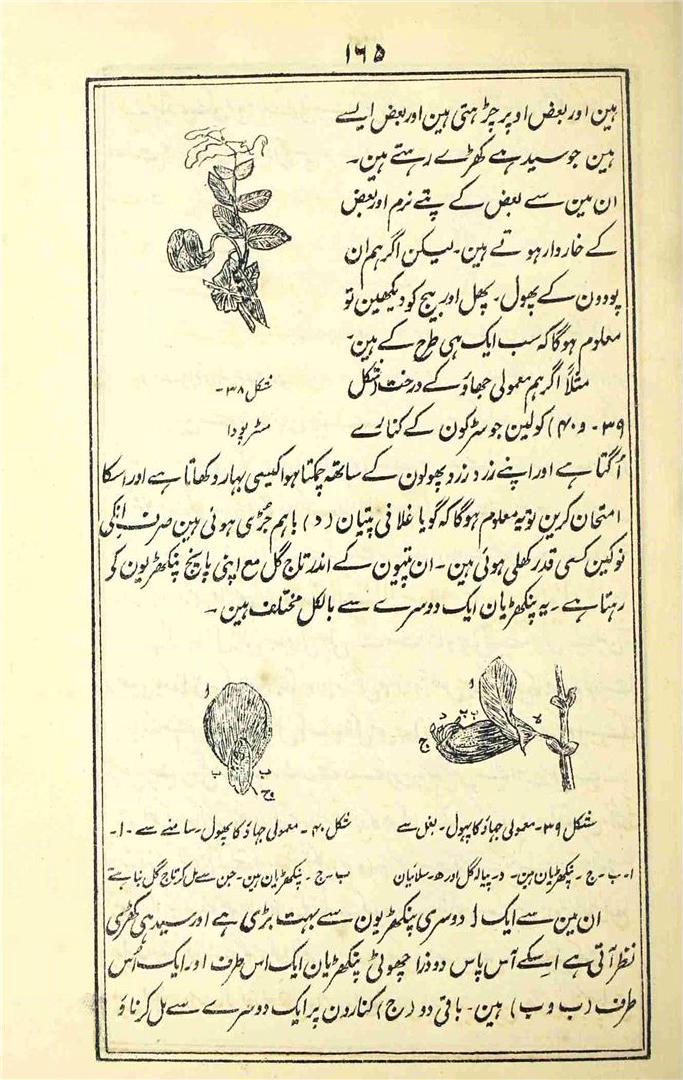 ۱۶۵
ہین اور بعض اوپر چڑہتی ہین اور بعض ایسے
ہین جو سیدہے کھڑے رہتے ہین۔
ان مین سے بعض کے پتے نرم اور بعض
کے خاردار ہوتے ہین۔ لیکن اگر ہم ان
پودون کے پھول۔ پھل اور بیج کو دیکھین تو
معلوم ہوگا کہ سب ایک ہی طرح کے ہین۔
مثلاً اگر ہم معمولی جھاؤ کے درخت (شکل
۳۹۔ و ۴۰) کو لین جو سڑکون کے کنارے
شکل ۳۸۔
مٹر پودا
اُگتا ہے اور اپنے زرد زرد پھولون کے ساتھ چمکتا ہوا کیسی بہار دکھاتا ہے اور اسکا
امتحان کرین تو یہ معلوم ہوگا کہ گویا غلافی پتیان (د) باہم جُڑی ہوئی ہین صرف انکی
نوکین کسی قدر کھلی ہوئی ہین۔ ان پتیون کے اندر تاج گل مع اپنی پانچ پنکھڑیون کو
رہتا ہے۔ یہ پنکھڑیان ایک دوسرے سے بالکل مختلف ہین۔
ا
ب
ج
د
ا
ب
ب
ج
شکل ۳۹۔ معمولی جہاؤ کا پہول۔ بغل سے
ا۔ ب۔ ج۔ پنکھڑیان ہین۔ د۔ پیالہ گل اور ھ۔ سلائیان
شکل ۴۰۔ معمولی جہاؤ کا پھول۔ سامنے سے۔ ا۔
ب۔ ج۔ پنکھڑیان ہین۔ جن سے مل کر تاج گل بنا ہے
ان مین سے ایک ا دوسری پنکھڑیون سے بہت بڑی ہے اور سیدہی کھڑی
نظر آتی ہے اسکے آس پاس دو ذرا چھوٹی پنکھڑیان ایک اس طرف اور ایک اُس
طرف (ب و ب) ہین۔ باقی دو (ج) کنارون پر ایک دوسرے سے مل کر ناؤ